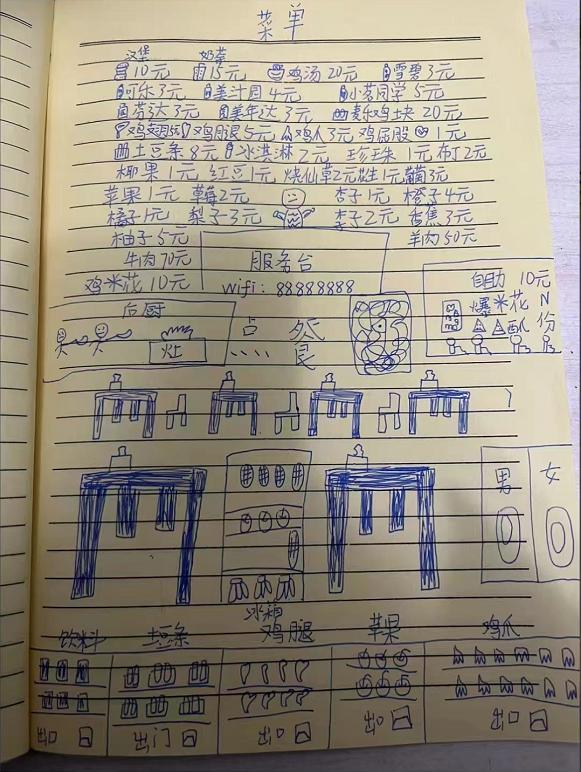 菜单
汉堡 奶茶
10元 15元 鸡汤 20元 雪碧 3元
可乐 3元 美汁园 4元 小茗同学 5元
芬达 3元 美年达 3元 麦乐鸡块 20元
鸡翅 5元 鸡腿 5元 鸡人 3元 鸡屁股 1元
土豆条 8元 冰淇淋 2元 珍珠 1元 布丁 2元
椰果 1元 红豆 1元 烧仙草 2元 花生 1元 葡萄 3元
苹果 1元 草莓 2元 杏子 1元 橙子 4元
橘子 1元 梨子 3元 李子 2元 香蕉 3元
柚子 5元 羊肉 50元
牛肉 70元 服务台
鸡米花 10元 wifi: 88888888
自助 10元
爆米花 N
份
后厨
灶
男 女
冰箱
饮料 土豆条 鸡腿 苹果 鸡爪
出口 出门 出口 出口 出口